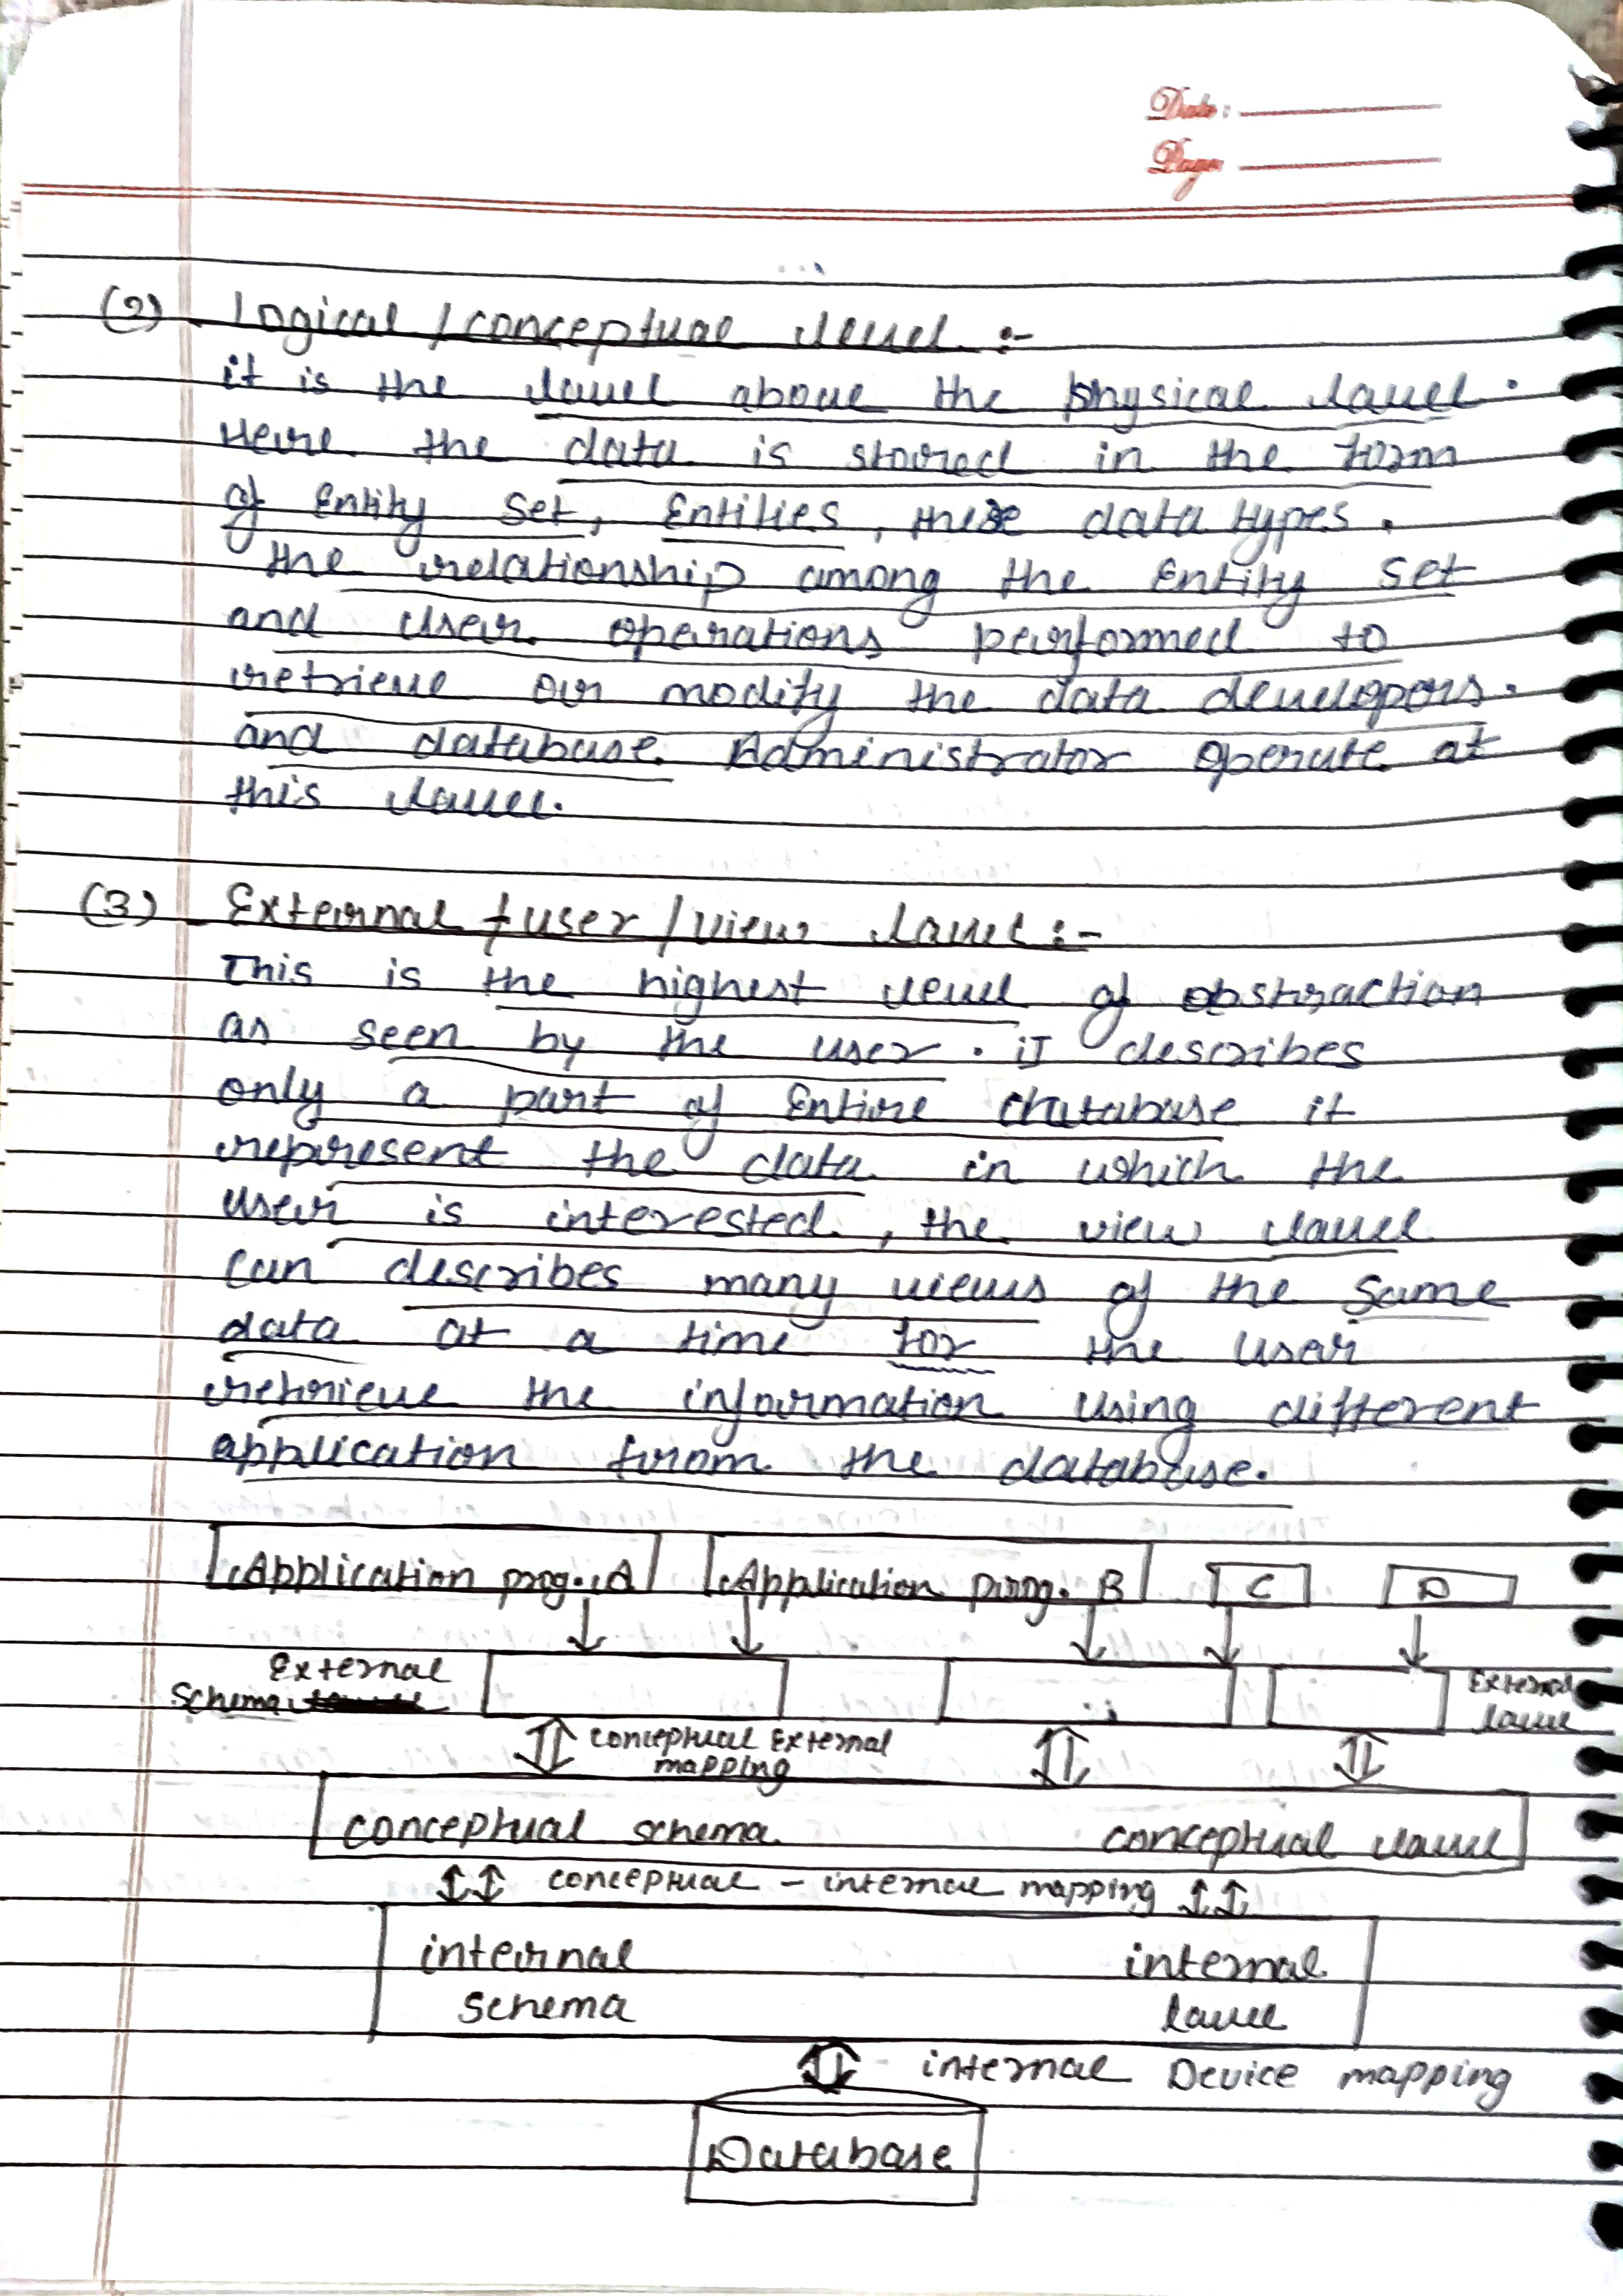 Date:
Page
(2) Logical / conceptual level :-
it is the lavel above the physical lavel.
Here the data is stored in the form
of Entity Set, Entities, these data types.
the relationship among the Entity set
and user operations performed to
retrieve or modify the data developers.
and database Administrator operate at
this lavel.
(3) External / user / view lavel :-
This is the highest level of abstraction
as seen by the user. it describes
only a part of Entire database it
represent the data in which the
user is interested, the view lavel
can describes many views of the same
data at a time for the user
retrieve the information using different
application from the database.
Application prog. A Application prog. B C D
External
Schema
External
lavel
conceptual External
mapping
conceptual schema conceptual lavel
conceptual - internal mapping
internal internal
schema lavel
internal Device mapping
Database